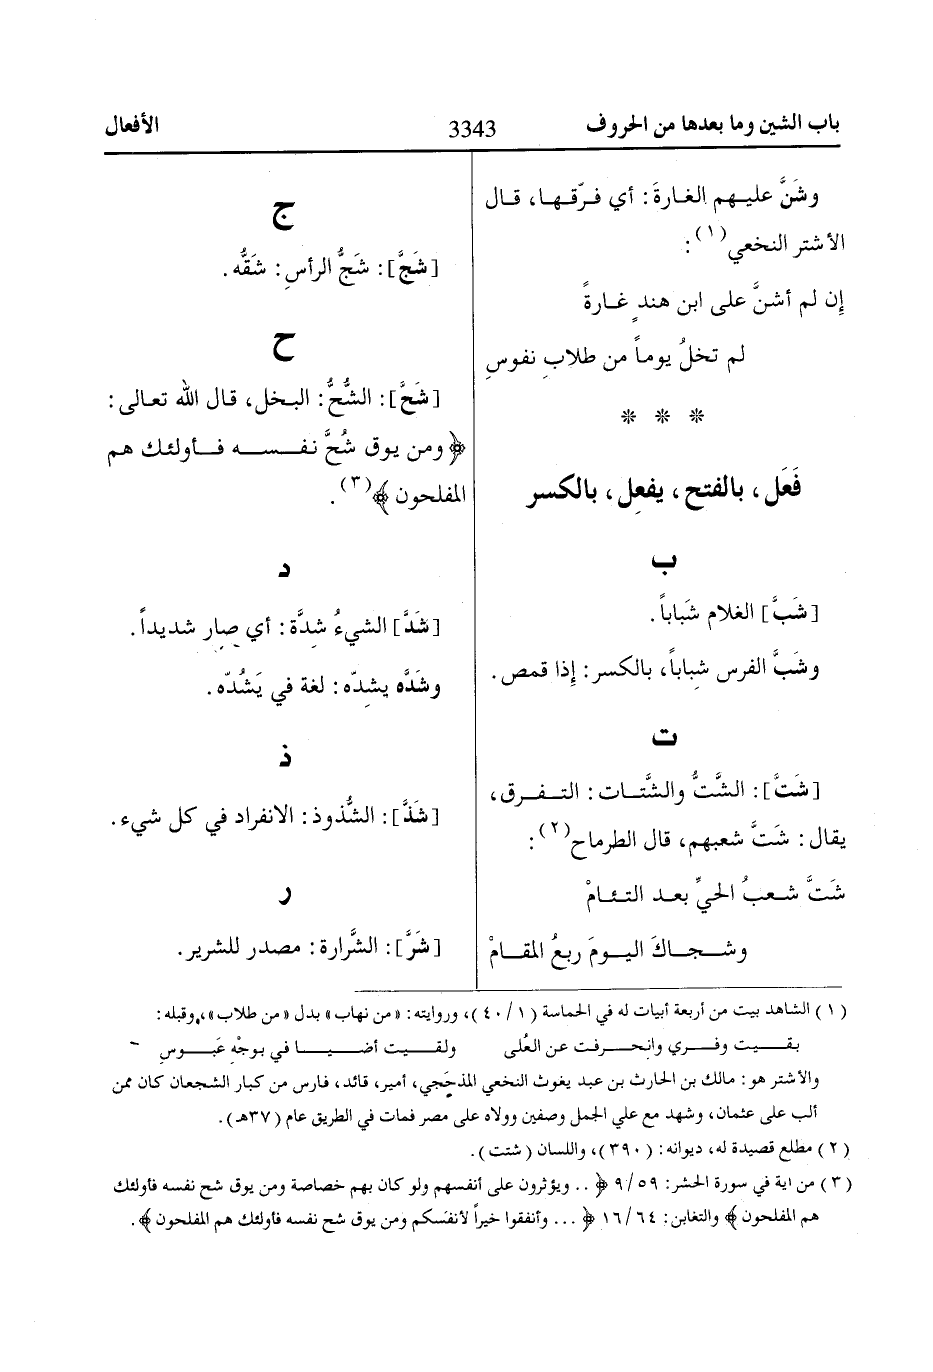 باب الشين وما بعدها من الحروف
3343
الأفعال
وشَنَّ عليهم الغارةَ: أي فرّقها، قال
الأشتر النخعي(١):
إِن لم أشنَّ على ابن هندٍ غارةً
لم تخلُ يوماً من طلابِ نفوسِ
* * *
فَعَل، بالفتح، يفعِل، بالكسر
ب
[شَبَّ] الغلام شَباباً.
وشَبَّ الفرس شِباباً، بالكسر: إِذا قمص.
ت
[شَتَّ]: الشَّتُّ والشَّتات: التفرق،
يقال: شَتَّ شعبهم، قال الطرماح(٢):
شَتَّ شعبُ الحيِّ بعد التئامْ
وشجاكَ اليومَ ربعُ المقامْ
ج
[شَجَّ]: شَجُّ الرأسِ: شَقُّه.
ح
[شَحَّ]: الشُّحُّ: البخل، قال الله تعالى:
﴿ ومن يوق شُحَّ نفسه فأولئك هم
المفلحون ﴾(٣).
د
[شَدَّ] الشيءُ شدَّة: أي صار شديداً.
وشَدَّه يشِدّه: لغة في يَشُدّه.
ذ
[شَذَّ]: الشُّذوذ: الانفراد في كل شيء.
ر
[شَرَّ]: الشَّرارة: مصدر للشرير.
(١) الشاهد بيت من أربعة أبيات له في الحماسة (١/٤٠)، وروايته: «من نهاب» بدل «من طلاب»، وقبله:
بقيت وفري وانحرفت عن العُلى ولقيت أضيافي بوجْه عَبوسِ
والأشتر هو: مالك بن الحارث بن عبد يغوث النخعي المذحجي، أمير، قائد، فارس من كبار الشجعان كان ممن
ألب على عثمان، وشهد مع علي الجمل وصفين وولاه على مصر فمات في الطريق عام (٣٧هـ).
(٢) مطلع قصيدة له، ديوانه: (٣٩٠)، واللسان (شتت).
(٣) من اية في سورة الحشر: ٥٩/٩ ﴿.. ويؤثرون على أنفسهم ولو كان بهم خصاصة ومن يوق شح نفسه فأولئك
هم المفلحون ﴾ والتغابن: ٦٤/١٦ ﴿ ... وأنفقوا خيراً لأنفسكم ومن يوق شح نفسه فأولئك هم المفلحون ﴾.